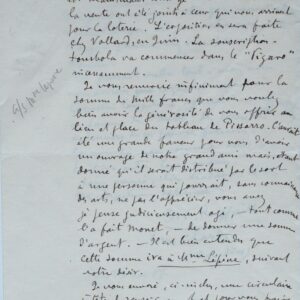 la vente ont été joints à ceux qui nous arrivent
pour la loterie. L'exposition en sera faite
chez Vollard, en Juin. La souscription-
tombola va commencer dans le "Figaro"
incessamment.
Je vous remercie infiniment pour la
somme de mille francs que vous voulez
bien avoir la générosité de nous offrir au
lieu et place du tableau de Pissarro. C'eut
été une grande faveur pour nous d'avoir
un ouvrage de notre grand ami mais, étant
donné qu'il serait distribué par le sort
à une personne qui pourrait, sans connaissance
des arts, ne pas l'apprécier, vous avez
je pense judicieusement agi, tout comme
l'a fait Monet, — de donner une somme
d'argent. — Il est bien entendu que
cette somme ira à Mme Lépine, suivant
votre désir.
Je vous envoie, ci-inclus, une circulaire